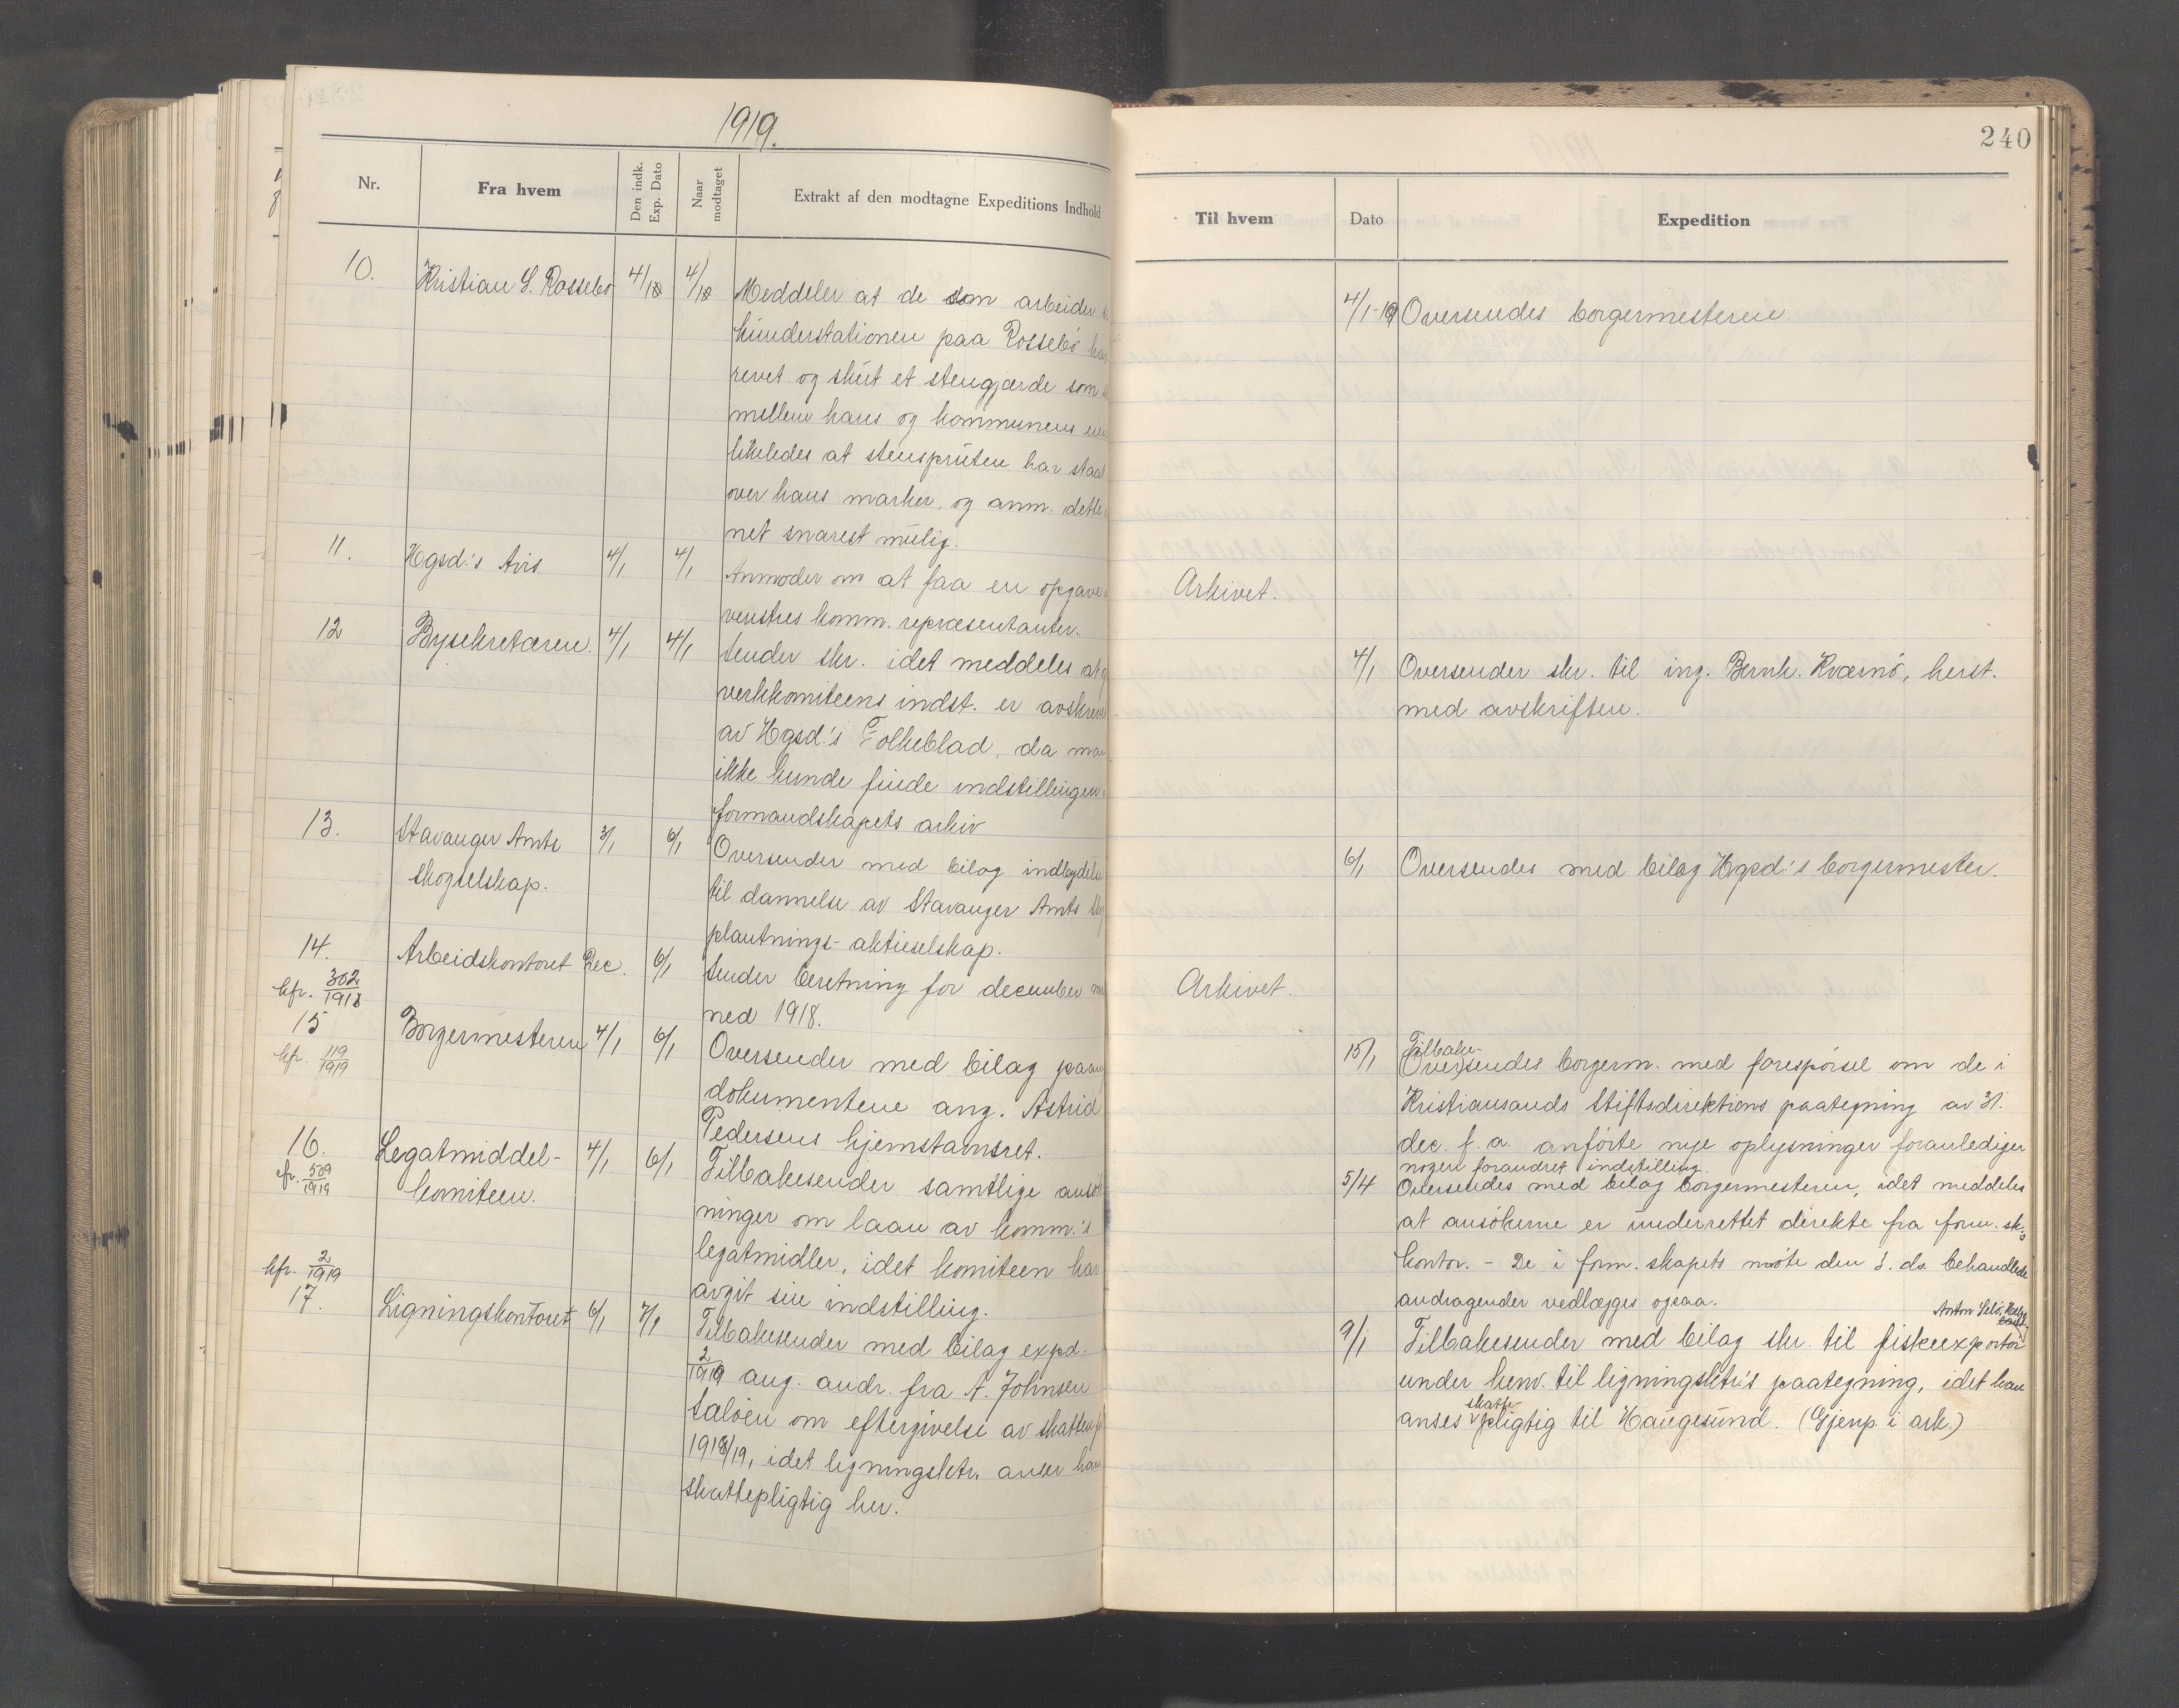 1919.
Nr.
Fra hvem
Den indk. Exp. Dato
Naar modtaget
Extrakt af den modtagne Expeditions Indhold
10.
Kristian S. Rossebø
4/1
4/1
Meddeler at de som arbeider
paa Rossebø
revet og skut et stengjærde som
mellem hans og kommunens
likeledes at stenspruten har staat
over hans marker, og anm. dette
net snarest mulig.
11.
Hgsd.'s Avis
4/1
4/1
Anmoder om at faa en opgave
venstres komm. repræsentanter.
12
Bysekretæren.
4/1
4/1
Sender skr. idet meddeles at
verkkomiteens indst. er avskrevet
av Hgsd.'s Folkeblad, da man
ikke kunde finde indstillingen
formandskapets arkiv
13.
Stavanger Amts
skogselskap.
3/1
6/1
Oversender med bilag indbydelse
til dannelse av Stavanger Amts
plantnings-aktieselskap.
14.
kfr. 302/1918
Arbeidskontoret
Dec.
6/1
Sender beretning for december
ned 1918.
15
kfr. 119/1919
Borgermesteren
4/1
6/1
Oversender med bilag
dokumentene ang. Astrid
Pedersens hjemstavnsret.
16.
cfr. 509/1919
Legatmiddel-
komiteen.
4/1
6/1
Tilbakesender samtlige ansøk
ninger om laan av komm.'s
legatmidler, idet komiteen har
avgit sin indstilling.
kfr. 2/1919
17.
Ligningskontoret
6/1
7/1
Tilbakesender med bilag expd.
2/1919 ang. andr. fra A. Johnsen
Saløen om eftergivelse av skatten
1918/19, idet ligningsktr. anser han
skattepligtig her.
240
Til hvem
Dato
Expedition
4/1-19
Oversendes borgermesteren
Arkivet.
4/1
Oversender skr. til ing. Bernh. Kværnø, herst.
med avskriften.
6/1
Oversendes med bilag Hgsd.'s borgermester.
Arkivet.
15/1
Tilbake-
(Over)sendes borgerm. med forespørsel om de i
Kristiansands Stiftsdirektions paategning av 31.
dec. f. a. anførte nye oplysninger foranlediger
nogen forandret indstilling.
5/4
Oversendes med bilag borgermesteren, idet meddeles
at ansøkerne er underrettet direkte fra form. sk.'s
kontor. - De i form. skapets møte den 3. ds. behandlede
andragender vedlægges ogsaa.
9/1
Anton
Tilbakesender med bilag skr. til fiskeexportør
under henv. til ligningsktr.'s paategning, idet han
skatte-
anses pligtig til Haugesund. (Gjenp. i ark.)